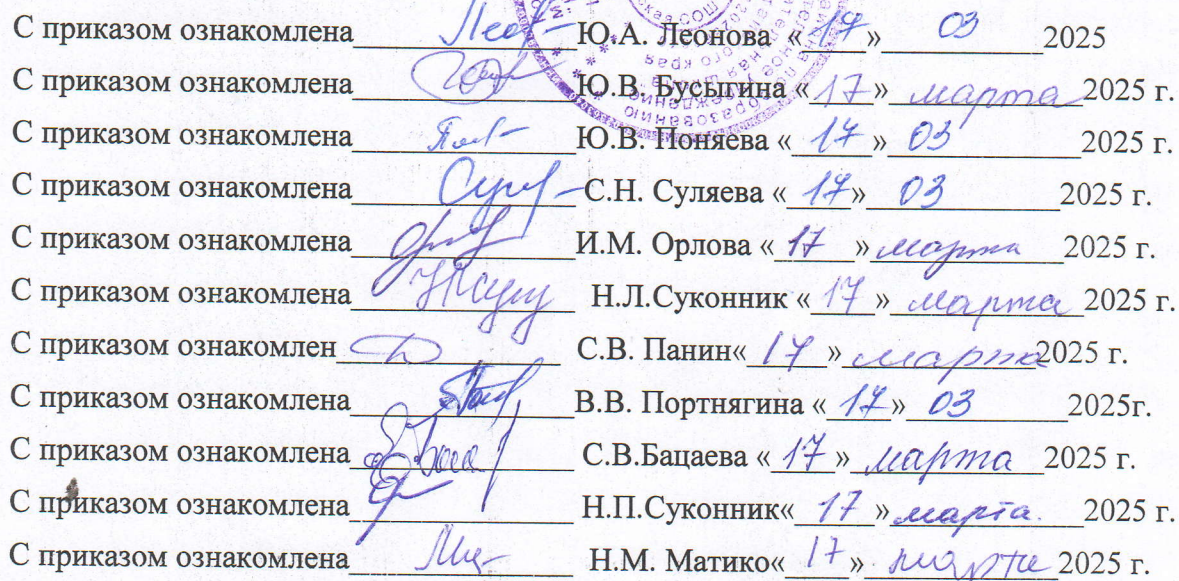 С приказом ознакомлена Ю.А. Леонова «17» 03 2025
С приказом ознакомлена Ю.В. Бусыгина «17» марта 2025 г.
С приказом ознакомлена Ю.В. Поняева «17» 03 2025 г.
С приказом ознакомлена С.Н. Суляева «17» 03 2025 г.
С приказом ознакомлена И.М. Орлова «17» марта 2025 г.
С приказом ознакомлена Н.Л.Суконник «17» марта 2025 г.
С приказом ознакомлен С.В. Панин«17» марта 2025 г.
С приказом ознакомлена В.В. Портнягина «17» 03 2025г.
С приказом ознакомлена С.В.Бацаева «17» марта 2025 г.
С приказом ознакомлена Н.П.Суконник«17» марта. 2025 г.
С приказом ознакомлена Н.М. Матико«17» марта 2025 г.